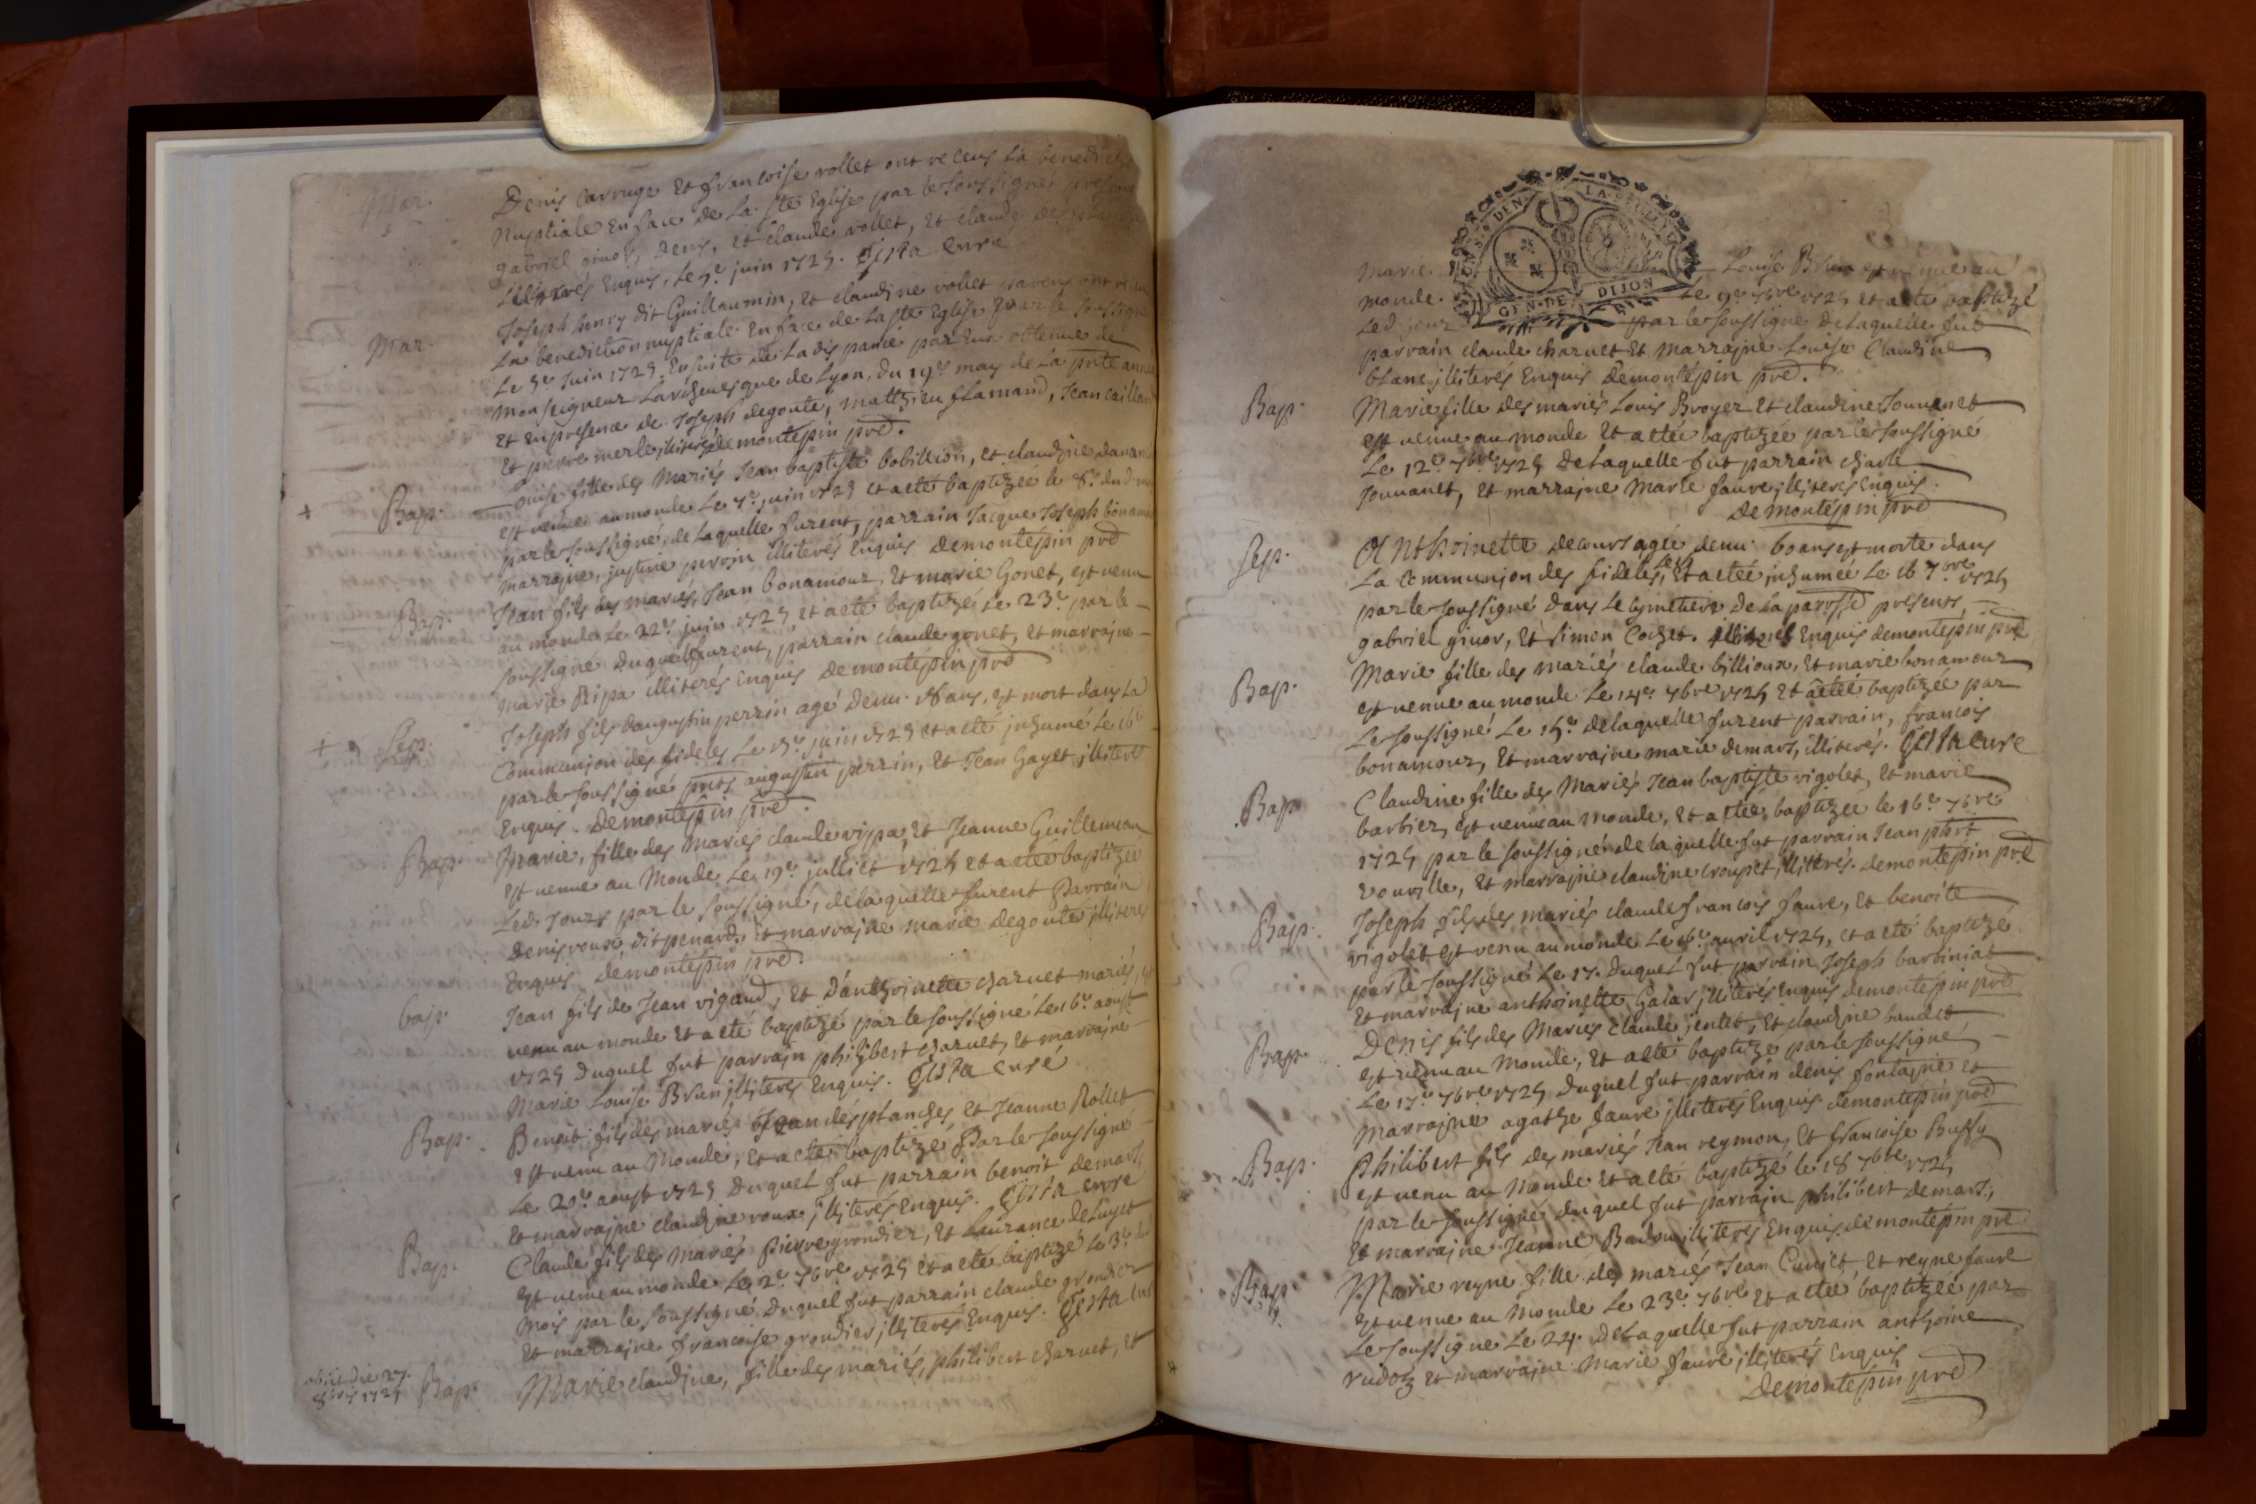 Mar.
Denis Carruge Et francoise rollet ont receus La benedict
Nuptiale En face de La ste Eglise par le soussigné presens
gabriel givor, Denis, et claude rollet, et claude desplanch
illiterés Enquis, Le 5e juin 1725. Gista Curé
Mar.
Joseph henry dit Guillaumin, Et claudine rollet parens ont receu
La benediction nuptiale En face de La ste Eglise par le soussigné
Le 5e Juin 1725, Ensuite de La dispanse par Eux obtenue de
Monseigneur Larchevesque de Lyon, du 19e may de La pnte année
Et En presence de Joseph degoute, matthieu flamand, Jean caillau
Et pierre merle, illiterés demontepin pred.
+ Bap.
Louise fille des Mariés Jean baptiste bobillion, et claudine danan
est venue au monde Le 7e juin 1725 et a eté baptizée le 8e dud m
par le soussigné, de Laquelle furent, parrain Jacque Joseph bonamo
marraine, justine perroin illiterés Enquis demontépin pred
Bap.
Jean fils des mariés, Jean bonamour, Et marie Gonet, est venu
au monde Le 22e juin 1725, et a eté baptizé Le 23e par le
soussigné duquel furent, parrain claude gonet, et marraine
marie Ripa illiterés Enquis demontépin pred
+ Sep.
Joseph fils daugustin perrin agé denv. 18 ans, est mort dans La
Communion des fideles Le 15e juin 1725 et a eté inhumé Le 16e
par le soussigné pnts augustin perrin, Et Jean Gayet illiteré
Enquis. demontépin pred.
Bap.
Marie, fille des Mariés claude rippa, Et Jeanne Guillemeau
est venue au Monde Le 19e julliet 1725 et a eteé baptizée
Led. Jour par le soussigné, de laquelle furent Parrain
Denis roux dit penard, et marraine marie degoute illiteres
Enquis demontépin pred.
bap.
Jean fils de Jean vigaud, et danthoinette charnet mariés, est
venu au monde Et a eté baptizé par le soussigné Le 6e aoust
1725 duquel fut parrain philibert charnet, Et marraine
Marie Louise Brun illiteres Enquis. Gista Curé
Bap.
Benoit fils des mariés Jean désplanches, Et Jeanne Rollet
est venu au Monde, Et a eté baptizé Par le soussigné
Le 20e aoust 1725 Duquel fut parrain benoit demars,
Et marraine claudine roux illiterés Enquis. Gista Curé
Bap.
Claude fils des Mariés Pierre grondier, Et Laurance de Luyset
est venu au monde Le 2e 7bre 1725 Et a eté baptizé Le 3e d
mois par le soussigné Duquel fut parrain claude grondier
Et marraine francoise grondier illiterés Enquis. Gista Cur
obiit die 27.
8bris 1725
Bap.
Marie claudine, fille des mariés, philibert charnet, Et
S. DEN. LA. GEN. DE. DIJON
Marie Louise Brun est venue au
monde. Le 9e 7bre 1725 et a eté baptizé
Led. jour par le soussigné de Laquelle fut
parrain claude charnet Et Marraine Louise Claudine
blanc illiterés Enquis Demontépin pred.
Bap.
Marie fille des mariés Louis Broyer Et claudine Jouvenet
est venue au monde Et a eteé baptizée par le soussigné
Le 12e 7bre 1725 de Laquelle fut parrain charle
Jouvanet, Et marraine Marie faure illiteres Enquis.
demontépin pred
Sep.
Anthoinette decours agée denv. 60 ans est morte dans
La communion des fideles, Et a eteé inhumée Le 16 7bre 1725
par le soussigné dans Le Cymetiere de La paroisse presents,
gabriel givor, Et simon Cochet. illiteres Enquis demontepin pred
Bap.
Marie fille des mariés claude billioux, Et marie bonamour
est venue au monde Le 14e 7bre 1725 Et a eteé baptizée par
Le soussigné Le 15e de laquelle furent parrain, francois
bonamour, Et marraine marie demars, illiterés. Gista Curé
Bap.
Claudine fille des Mariés Jean baptiste vigolet, Et marie
barbier, est venue au monde, Et a eteé baptizée le 16e 7bre
1725 par le soussigné de laquelle fut parrain Jean phrt
vouville, Et marraine claudine croupet, illiterés. demontépin pred
Bap.
Joseph fils des mariés claude francois faure, Et benoite
vigolet est venu au monde Le 16e avril 1725, et a eté baptizé
par le soussigné Le 17. duquel fut parrain Joseph barbiniat
Et marraine anthoinette Galar illiterés Enquis demontépin pred
Bap.
Denis fils des Mariés claude jentet, Et claudine baudet
est venu au Monde, Et a eté baptizé par le soussigné
Le 17e 7bre 1725 duquel fut parrain denis fontaine et
Marraine agathe faure illiteres Enquis demontépin pred
Bap.
Philibert fils des mariés Jean reymon, Et francoise Buffy
est venu au Monde Et a eté baptizé le 18 7bre 1725
par le soussigné duquel fut parrain philibert demars,
Et marraine Jeanne Badou illiteres Enquis demontépin pre
Bap.
Marie reyne fille des mariés Jean Cuniet, Et reyne faure
est venue au Monde Le 23e 7bre Et a eteé baptizée par
Le soussigné Le 24. de Laquelle fut parrain anthoine
rudoz Et marraine Marie faure illiterés Enquis
demontépin pred